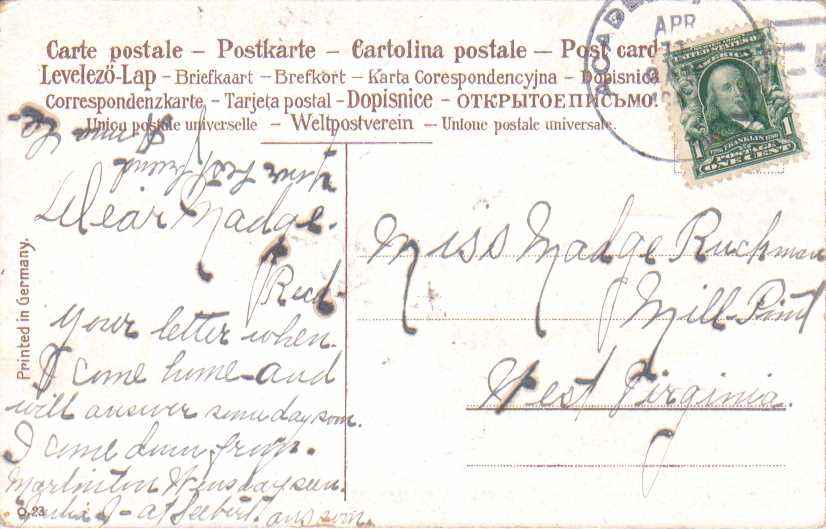 Carte postale – Postkarte – Cartolina postale – Post card
Levelező-Lap – Briefkaart – Brefkort – Karta Corespondencyjna – Dopisnica
Correspondenzkarte – Tarjeta postal – Dopisnice – ОТКРЫТОЕ ПИСЬМО.
Union postale universelle – Weltpostverein – Unione postale universale.
APR
UNITED STATES OF AMERICA
1 FRANKLIN 1
POSTAGE
ONE CENT
your Friend
Dear Madge.
Recd.
your letter when.
I come home and
will answer some day soon.
I come down from.
Marlinton Wensday seen
at Seebert. ans soon.
Miss Madge Ruckman
Mill-Point
West Virginia.
Printed in Germany.
O.23